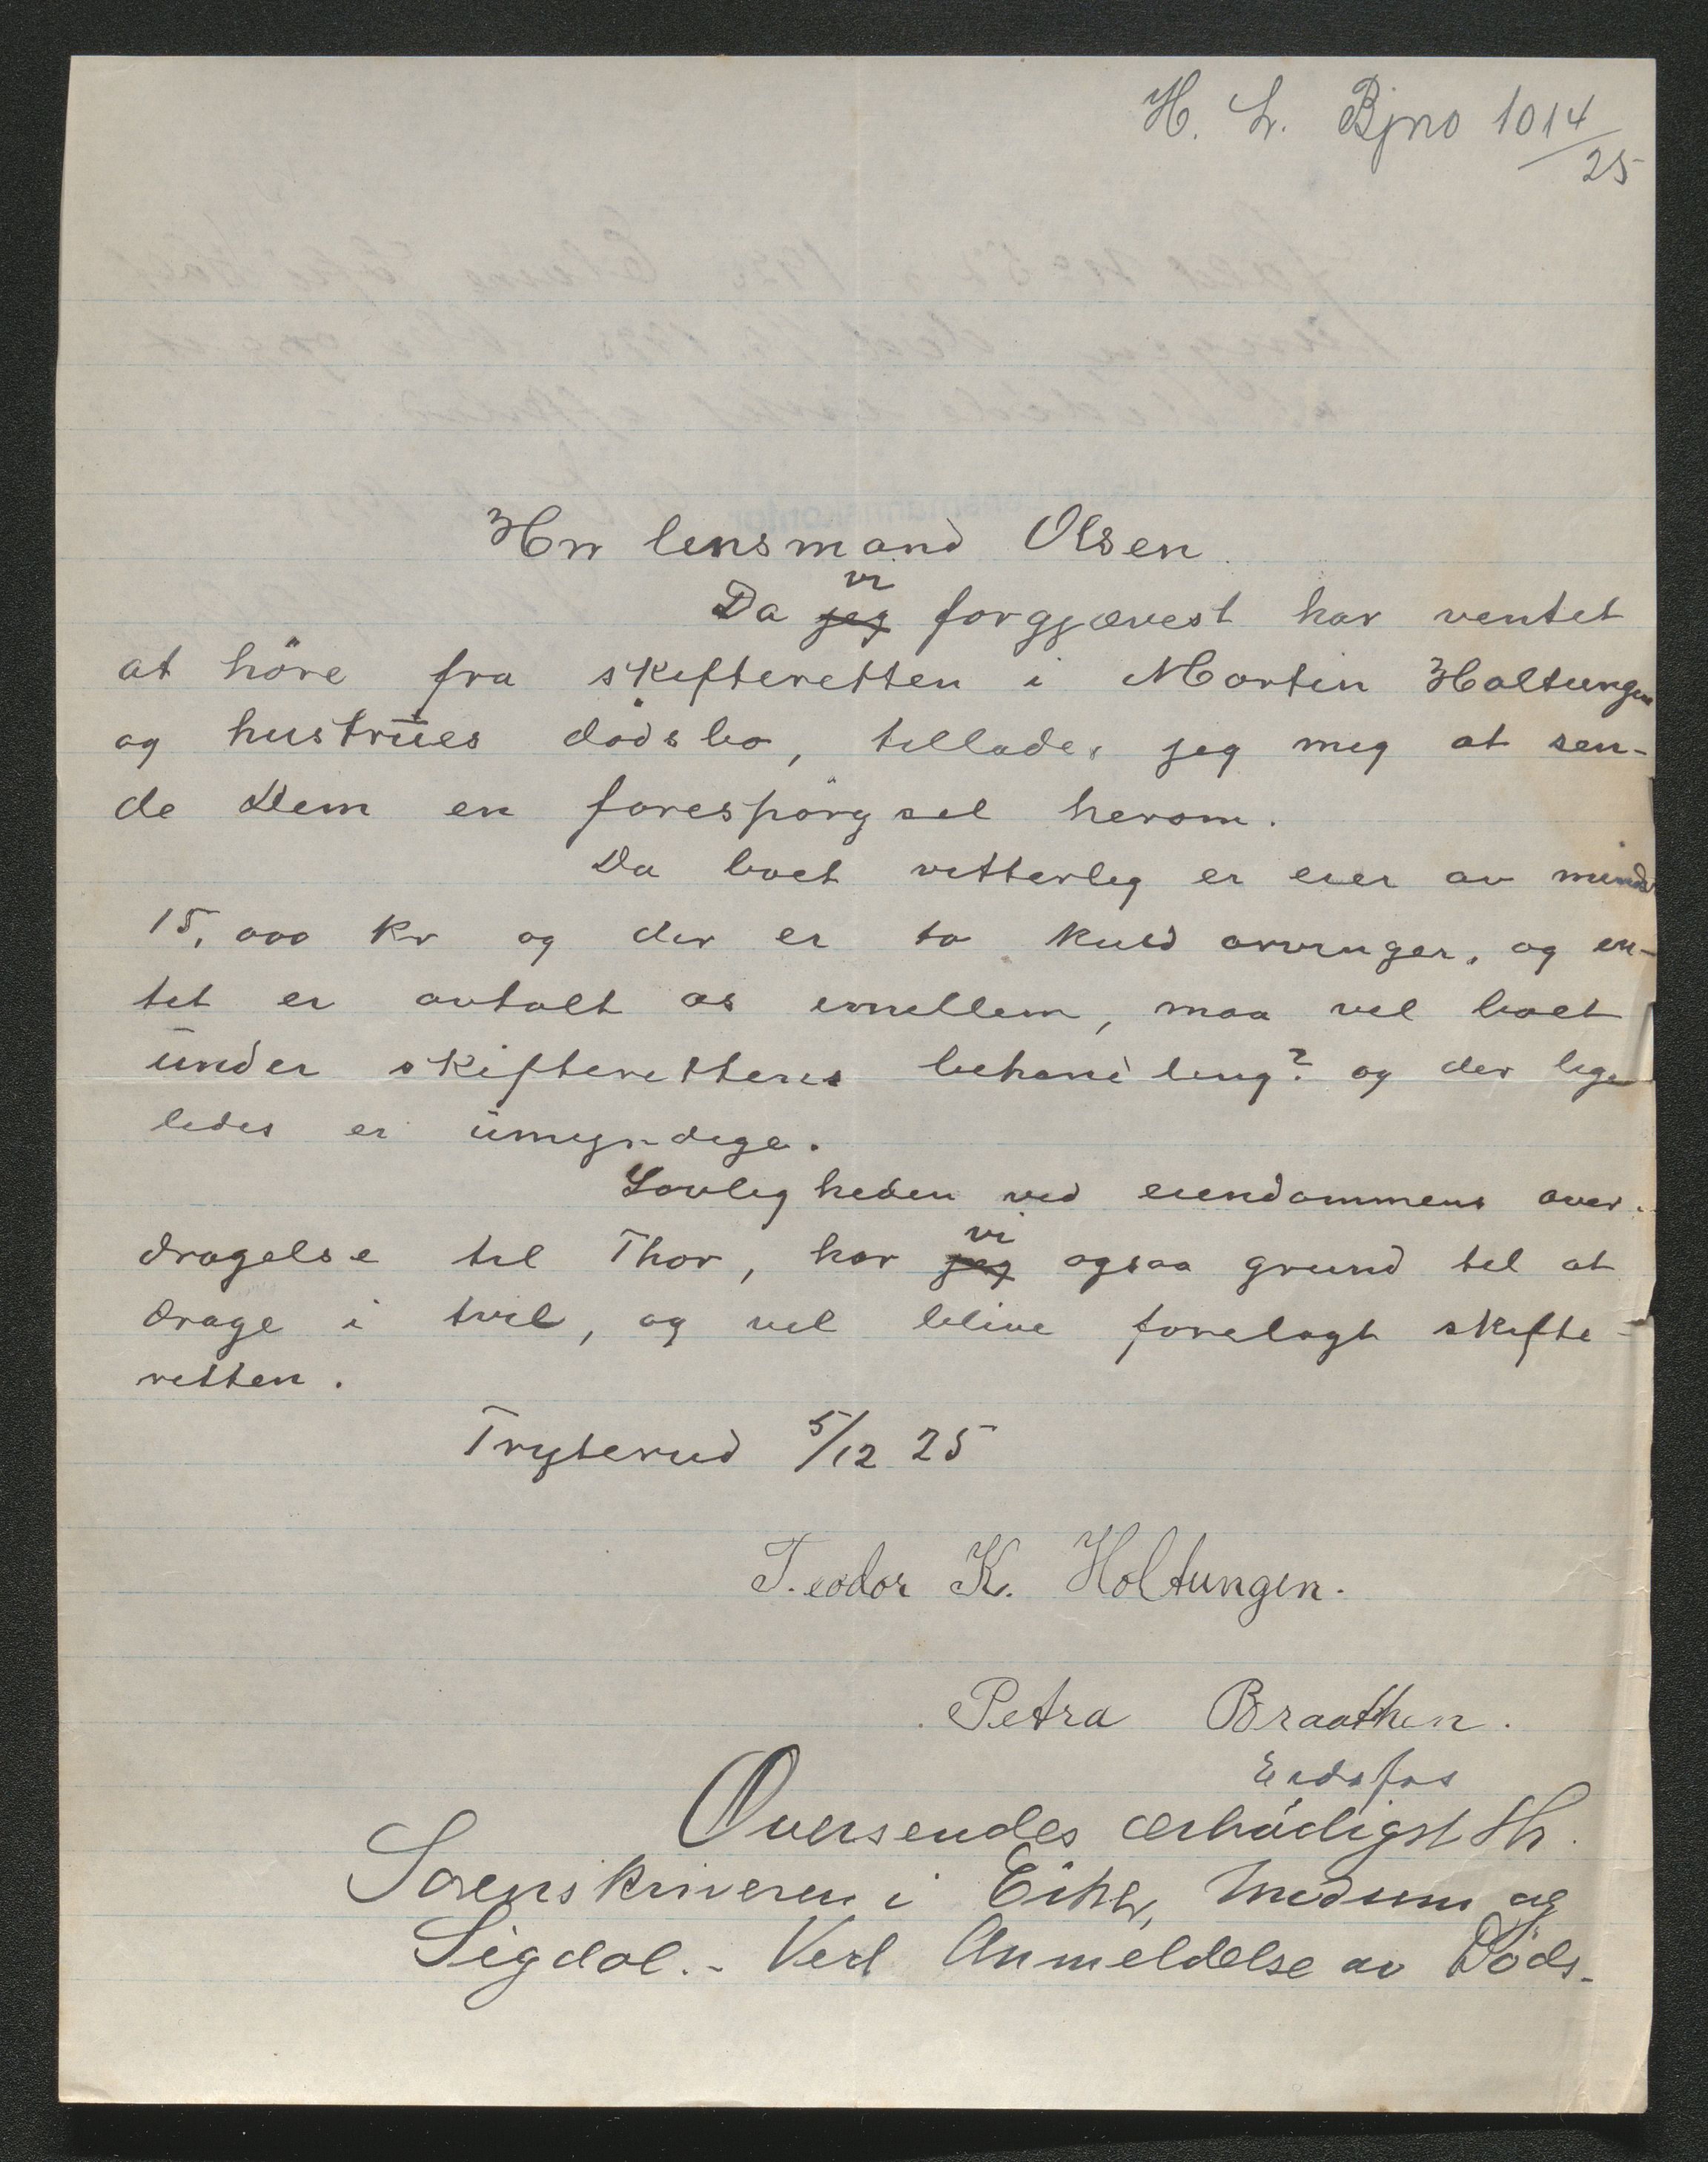 H. L. Bjno 1014/25
Hrr lensmand Olsen
vi
Da jeg forgjævest har ventet
at höre fra skifteretten i Martin Holtungen
og hustrues dödsbo, tillader jeg mig at sen-
de Dem en forespörgsel herom.
Da boet vitterlig er eier av minds
15,000 kr og der er to kuld arvinger, og in-
tet er avtalt os imellem, maa vel boet
under skifterettens behandling? og der lige
ledes er umyndige.
Lovligheden ved eiendommens over-
vi
dragelse til Thor, har jeg ogsaa grund til at
drage i tvil, og vil blive forelagt skifte-
retten.
Tryterud 5/12 25
Teodor K. Holtungen.
Petra Braathen.
Eidsfos
Oversendes ærbödigst Hr.
Sorenskriveren i Eiker, Modum og
Sigdal. - Ved Anmeldelse av Döds-